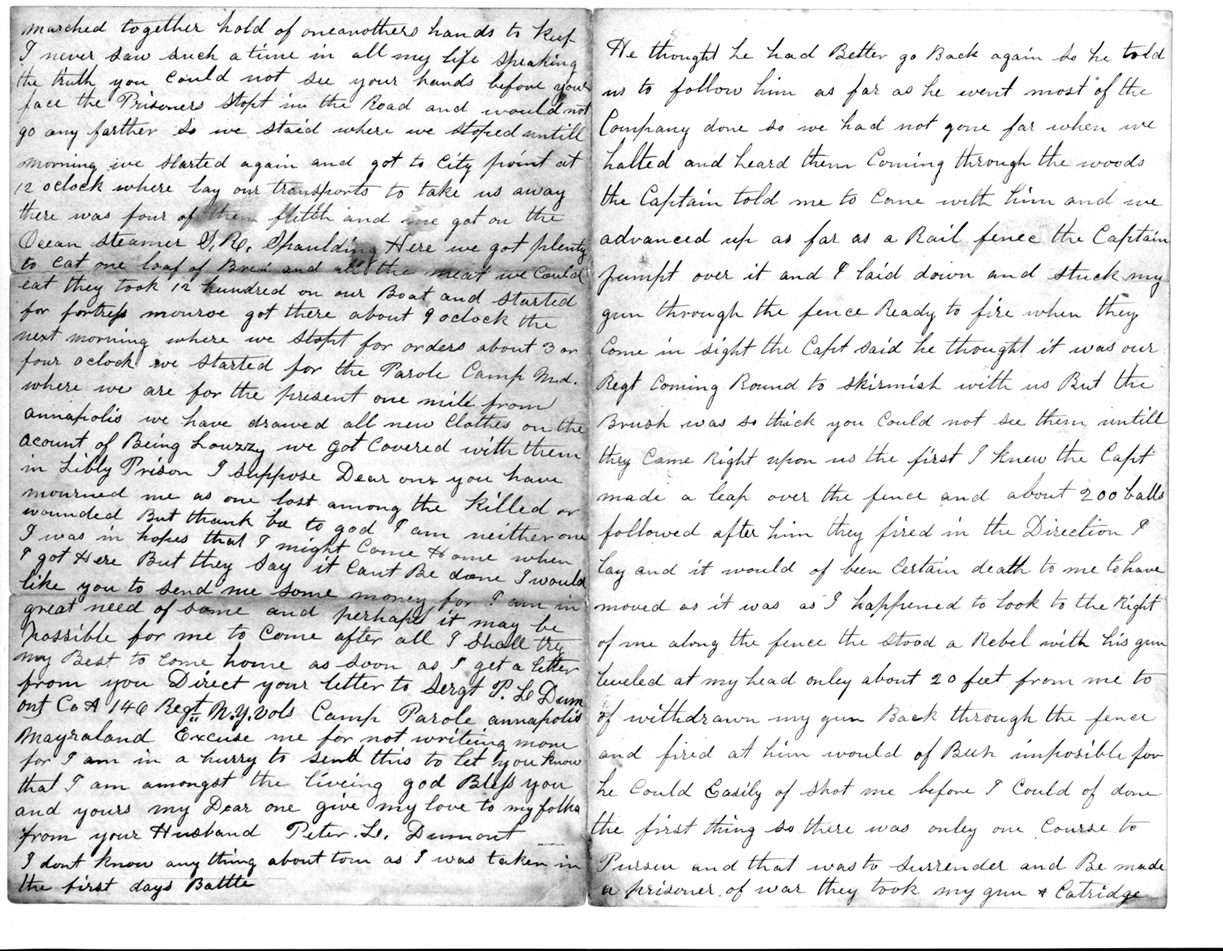 marched together hold of oneanothers hands to keep
I never saw such a time in all my life speaking
the truth you Could not see your hands before your
face the Prisoners Stopt in the Road and would not
go any farther So we staid where we stoped untill
morning we started again and got to City point at
12 oclock where lay our transports to take us away
there was four of them flitch and me got on the
Ocean Steamer S, R, Spaulding Here we got plenty
to eat one loaf of Bread and all the meat we Could
eat they took 12 hundred on our Boat and started
for fortress monroe got there about 9 oclock the
next morning where we Stopt for orders about 3 or
four oclock we started for the Parole Camp Md.
where we are for the present one mile from
annapolis we have drawed all new Clothes on the
acount of Being Louzzy we got Covered with them
in Libly Prison I suppose Dear one you have
mourned me as one lost among the killed or
wounded But thank be to god I am neither one
I was in hopes that I might Come Home when
I got Here But they Say it Cant Be done I would
like you to send me some money for I am in
great need of some and perhaps it may be
Possible for me to Come after all I Shall try
my Best to come home as soon as I get a letter
from you Direct your letter to Sergt P. Le Dum
ont Co A 146 Regt N.Y. Vols Camp Parole annapolis
Mayraland Excuse me for not writeing more
for I am in a hurry to send this to let you know
that I am amongst the liveing god Bless you
and yours my Dear one give my love to my folks
from your Husband Peter. Le. Dumont
I dont know any thing about tom as I was taken in
the first days Battle
He thought he had Better go Back again so he told
us to follow him as far as he went most of the
Company done so we had not gone far when we
halted and heard them Coming through the woods
the Captain told me to Come with him and we
advanced up as far as a Rail fence the Captain
jumpt over it and I laid down and stuck my
gun through the fence Ready to fire when they
Come in sight the Capt said he thought it was our
Regt Coming Round to skirmish with us But the
Brush was so thick you Could not see them untill
they Came Right upon us the first I knew the Capt
made a leap over the fence and about 200 balls
followed after him they fired in the Direction I
lay and it would of been Certain death to me to have
moved as it was as I happened to look to the Right
of me along the fence the stood a Rebel with his gun
leveled at my head onley about 20 feet from me to
of withdrawn my gun Back through the fence
and fired at him would of Been imposible for
he Could Easily of shot me before I Could of done
the first thing so there was onley one Course to
Pursue and that was to Surrender and Be made
a prisoner of war they took my gun & Catridge